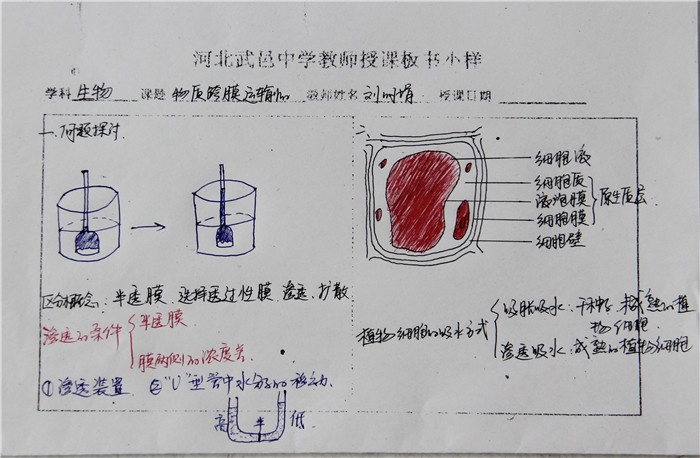 河北武邑中学教师授课板书小样
学科 生物 课题 物质跨膜运输的 教师姓名 刘 授课日期
一、问题探讨:
区分概念: 半透膜、选择透过性膜、渗透、扩散
渗透的条件
半透膜
膜两侧的浓度差
①渗透装置 ②"U"型管中水分的移动.
高 半 低
二、
细胞液
细胞质
液泡膜
细胞膜
细胞壁
原生质层
植物细胞的吸水方式
吸胀吸水:干种子、未成熟的植
物细胞.
渗透吸水:成熟的植物细胞